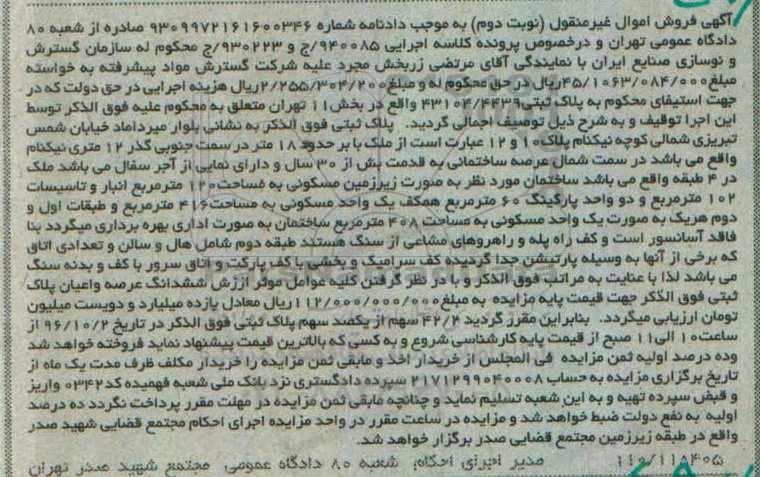 آگهی فروش اموال غیرمنقول (نوبت دوم) به موجب دادنامه شماره ۹۳۰۹۹۷۲۱۶۱۶۰۰۳۴۶ صادره از شعبه ۸۰
دادگاه عمومی تهران و درخصوص پرونده کلاسه اجرایی ۹۴۰۰۸۵/ج و ۹۳۰۲۲۳/ج محکوم له سازمان گسترش
و نوسازی صنایع ایران با نمایندگی آقای مرتضی زربخش مجرد علیه شرکت گسترش مواد پیشرفته به خواسته
مبلغ۴۵/۱۰۶۳/۰۸۴/۰۰۰ریال در حق محکوم له و مبلغ۲/۲۵۵/۳۰۴/۲۰۰ریال هزینه اجرایی در حق دولت که در
جهت استیفای محکوم به پلاک ثبتی۴۳۱۰۴/۴۴۳۹ واقع در بخش۱۱ تهران متعلق به محکوم علیه فوق الذکر توسط
این اجرا توقیف و به شرح ذیل توصیف اجمالی گردید. پلاک ثبتی فوق الذکر به نشانی بلوار میرداماد خیابان شمس
تبریزی شمالی کوچه نیکنام پلاک۱۰ و ۱۲ عبارت است از ملک با بر حدود ۱۸ متر در سمت جنوبی گذر ۱۲ متری نیکنام
واقع می باشد در سمت شمال عرصه ساختمانی به قدمت بیش از ۳۰ سال و دارای نمایی از آجر سفال می باشد ملک
در ۴ طبقه واقع می باشد ساختمان مورد نظر به صورت زیرزمین مسکونی به مساحت۱۲۰ مترمربع انبار و تاسیسات
۱۰۲ مترمربع و دو واحد پارکینگ ۶۰ مترمربع همکف یک واحد مسکونی به مساحت۴۱۶ مترمربع و طبقات اول و
دوم هریک به صورت یک واحد مسکونی به مساحت ۴۰۸ مترمربع ساختمان به صورت اداری بهره برداری میگردد بنا
فاقد آسانسور است و کف راه پله و راهروهای مشاعی از سنگ هستند طبقه دوم شامل هال و سالن و تعدادی اتاق
که برخی از آنها به وسیله پارتیشن جدا گردیده کف سرامیک و بخشی با کف پارکت و اتاق سرور با کف و بدنه سنگ
می باشد لذا با عنایت به مراتب فوق الذکر و با در نظر گرفتن کلیه عوامل موثر ارزش ششدانگ عرصه واعیان پلاک
ثبتی فوق الذکر جهت قیمت پایه مزایده به مبلغ۱۱۲/۰۰۰/۰۰۰/۰۰۰ ریال معادل یازده میلیارد و دویست میلیون
تومان ارزیابی میگردد. بنابراین مقرر گردید ۴۲/۲ سهم از یکصد سهم پلاک ثبتی فوق الذکر در تاریخ ۹۶/۱۰/۲ از
ساعت۱۰ الی۱۱ صبح از قیمت پایه کارشناسی شروع و به کسی که بالاترین قیمت پیشنهاد نماید فروخته خواهد شد
وده درصد اولیه ثمن مزایده فی المجلس از خریدار اخذ و مابقی ثمن مزایده را خریدار مکلف ظرف مدت یک ماه از
تاریخ برگزاری مزایده به حساب ۲۱۷۱۲۹۹۰۴۰۰۰۸ سپرده دادگستری نزد بانک ملی شعبه فهمیده کد ۰۳۴۲ واریز
و قبض سپرده تهیه و به این شعبه تسلیم نماید و چنانچه مابقی ثمن مزایده در مهلت مقرر پرداخت نگردد ده درصد
اولیه به نفع دولت ضبط خواهد شد و مزایده در ساعت مقرر در واحد مزایده اجرای احکام مجتمع قضایی شهید صدر
واقع در طبقه زیرزمین مجتمع قضایی صدر برگزار خواهد شد.
۱۱۰/۱۱۵۴۰۵ مدیر اجرای احکام شعبه ۸۰ دادگاه عمومی مجتمع شهید صدر تهران